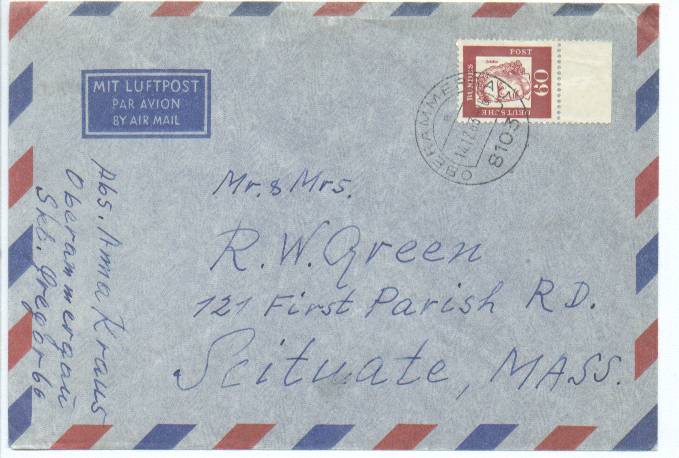 MIT LUFTPOST
PAR AVION
BY AIR MAIL
DEUTSCHE
BUNDES
POST
60
OBERAMMERGAU
8103
Mr. & Mrs.
R. W. Green
121 First Parish RD.
Scituate, MASS.
Abs. Anna Kraus
Oberammergau